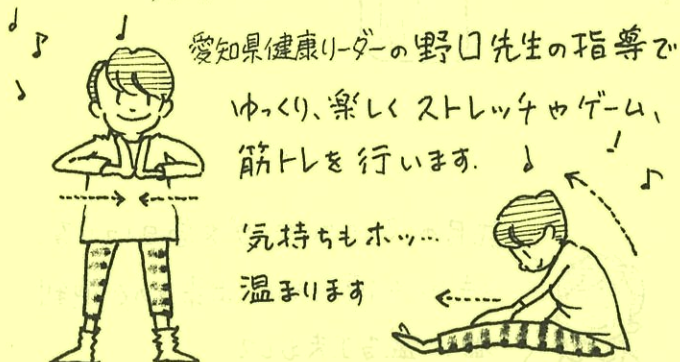 愛知県健康リーダーの野口先生の指導で
ゆっくり、楽しくストレッチやゲーム、
筋トレを行います.
気持ちもホッ…
温まります